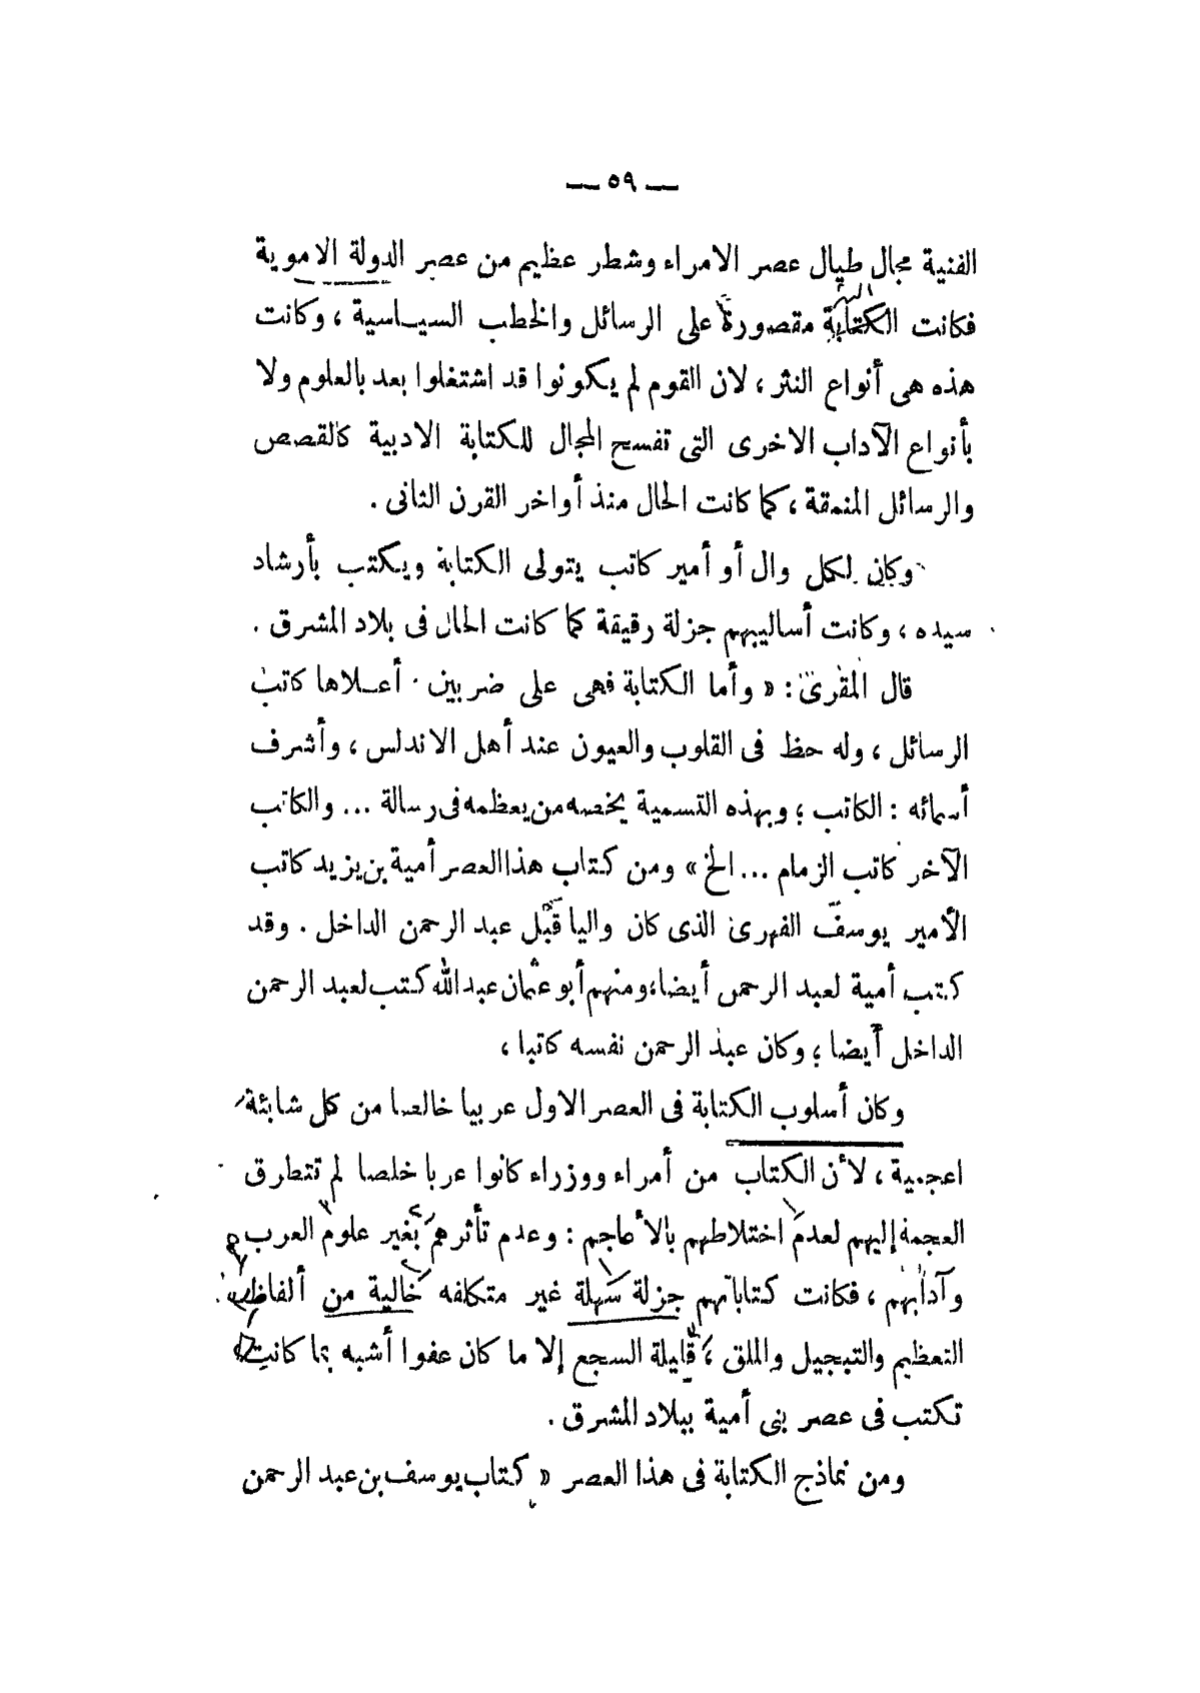 — ٥٩ —
الفنية مجال طيال عصر الامراء وشطر عظيم من عصر الدولة الاموية
فكانت الكتابة مقصورة على الرسائل والخطب السياسية ، وكانت
هذه هى أنواع النثر ، لان القوم لم يكونوا قد اشتغلوا بعد بالعلوم ولا
بأنواع الآداب الاخرى التى تفسح المجال للكتابة الادبية كالقصص
والرسائل المنمقة ، كما كانت الحال منذ أواخر القرن الثانى .
وكان لكل وال أو أمير كاتب يتولى الكتابة ويكتب بأرشاد
سيده ، وكانت أساليبهم جزلة رقيقة كما كانت الحال فى بلاد المشرق .
قال المقرى : « وأما الكتابة فهى على ضربين . أعلاها كاتب
الرسائل ، وله حظ فى القلوب والعيون عند أهل الاندلس ، وأشرف
أسمائه : الكاتب ؛ وبهذه التسمية يخصه من يعظمه فى رسالة ... والكاتب
الآخر كاتب الزمام ... الخ » ومن كتاب هذا العصر أمية بن يزيد كاتب
الأمير يوسف الفهرى الذى كان واليا قبل عبد الرحمن الداخل . وقد
كتب أمية لعبد الرحمن أيضا ؛ ومنهم أبو عثمان عبد الله كتب لعبد الرحمن
الداخل أيضا ؛ وكان عبد الرحمن نفسه كاتبا ،
وكان أسلوب الكتابة فى العصر الاول عربيا خالصا من كل شابئة
اعجمية ، لأن الكتاب من أمراء ووزراء كانوا عربا خلصا لم تتطرق
العجمة إليهم لعدم اختلاطهم بالأعاجم : وعدم تأثرهم بغير علوم العرب
وآدابهم ، فكانت كتاباتهم جزلة سهلة غير متكلفه خالية من ألفاظ
التعظيم والتبجيل والملق ، قليلة السجع إلا ما كان عفوا أشبه بما كانت
تكتب فى عصر بنى أمية ببلاد المشرق .
ومن نماذج الكتابة فى هذا العصر « كتاب يوسف بن عبد الرحمن